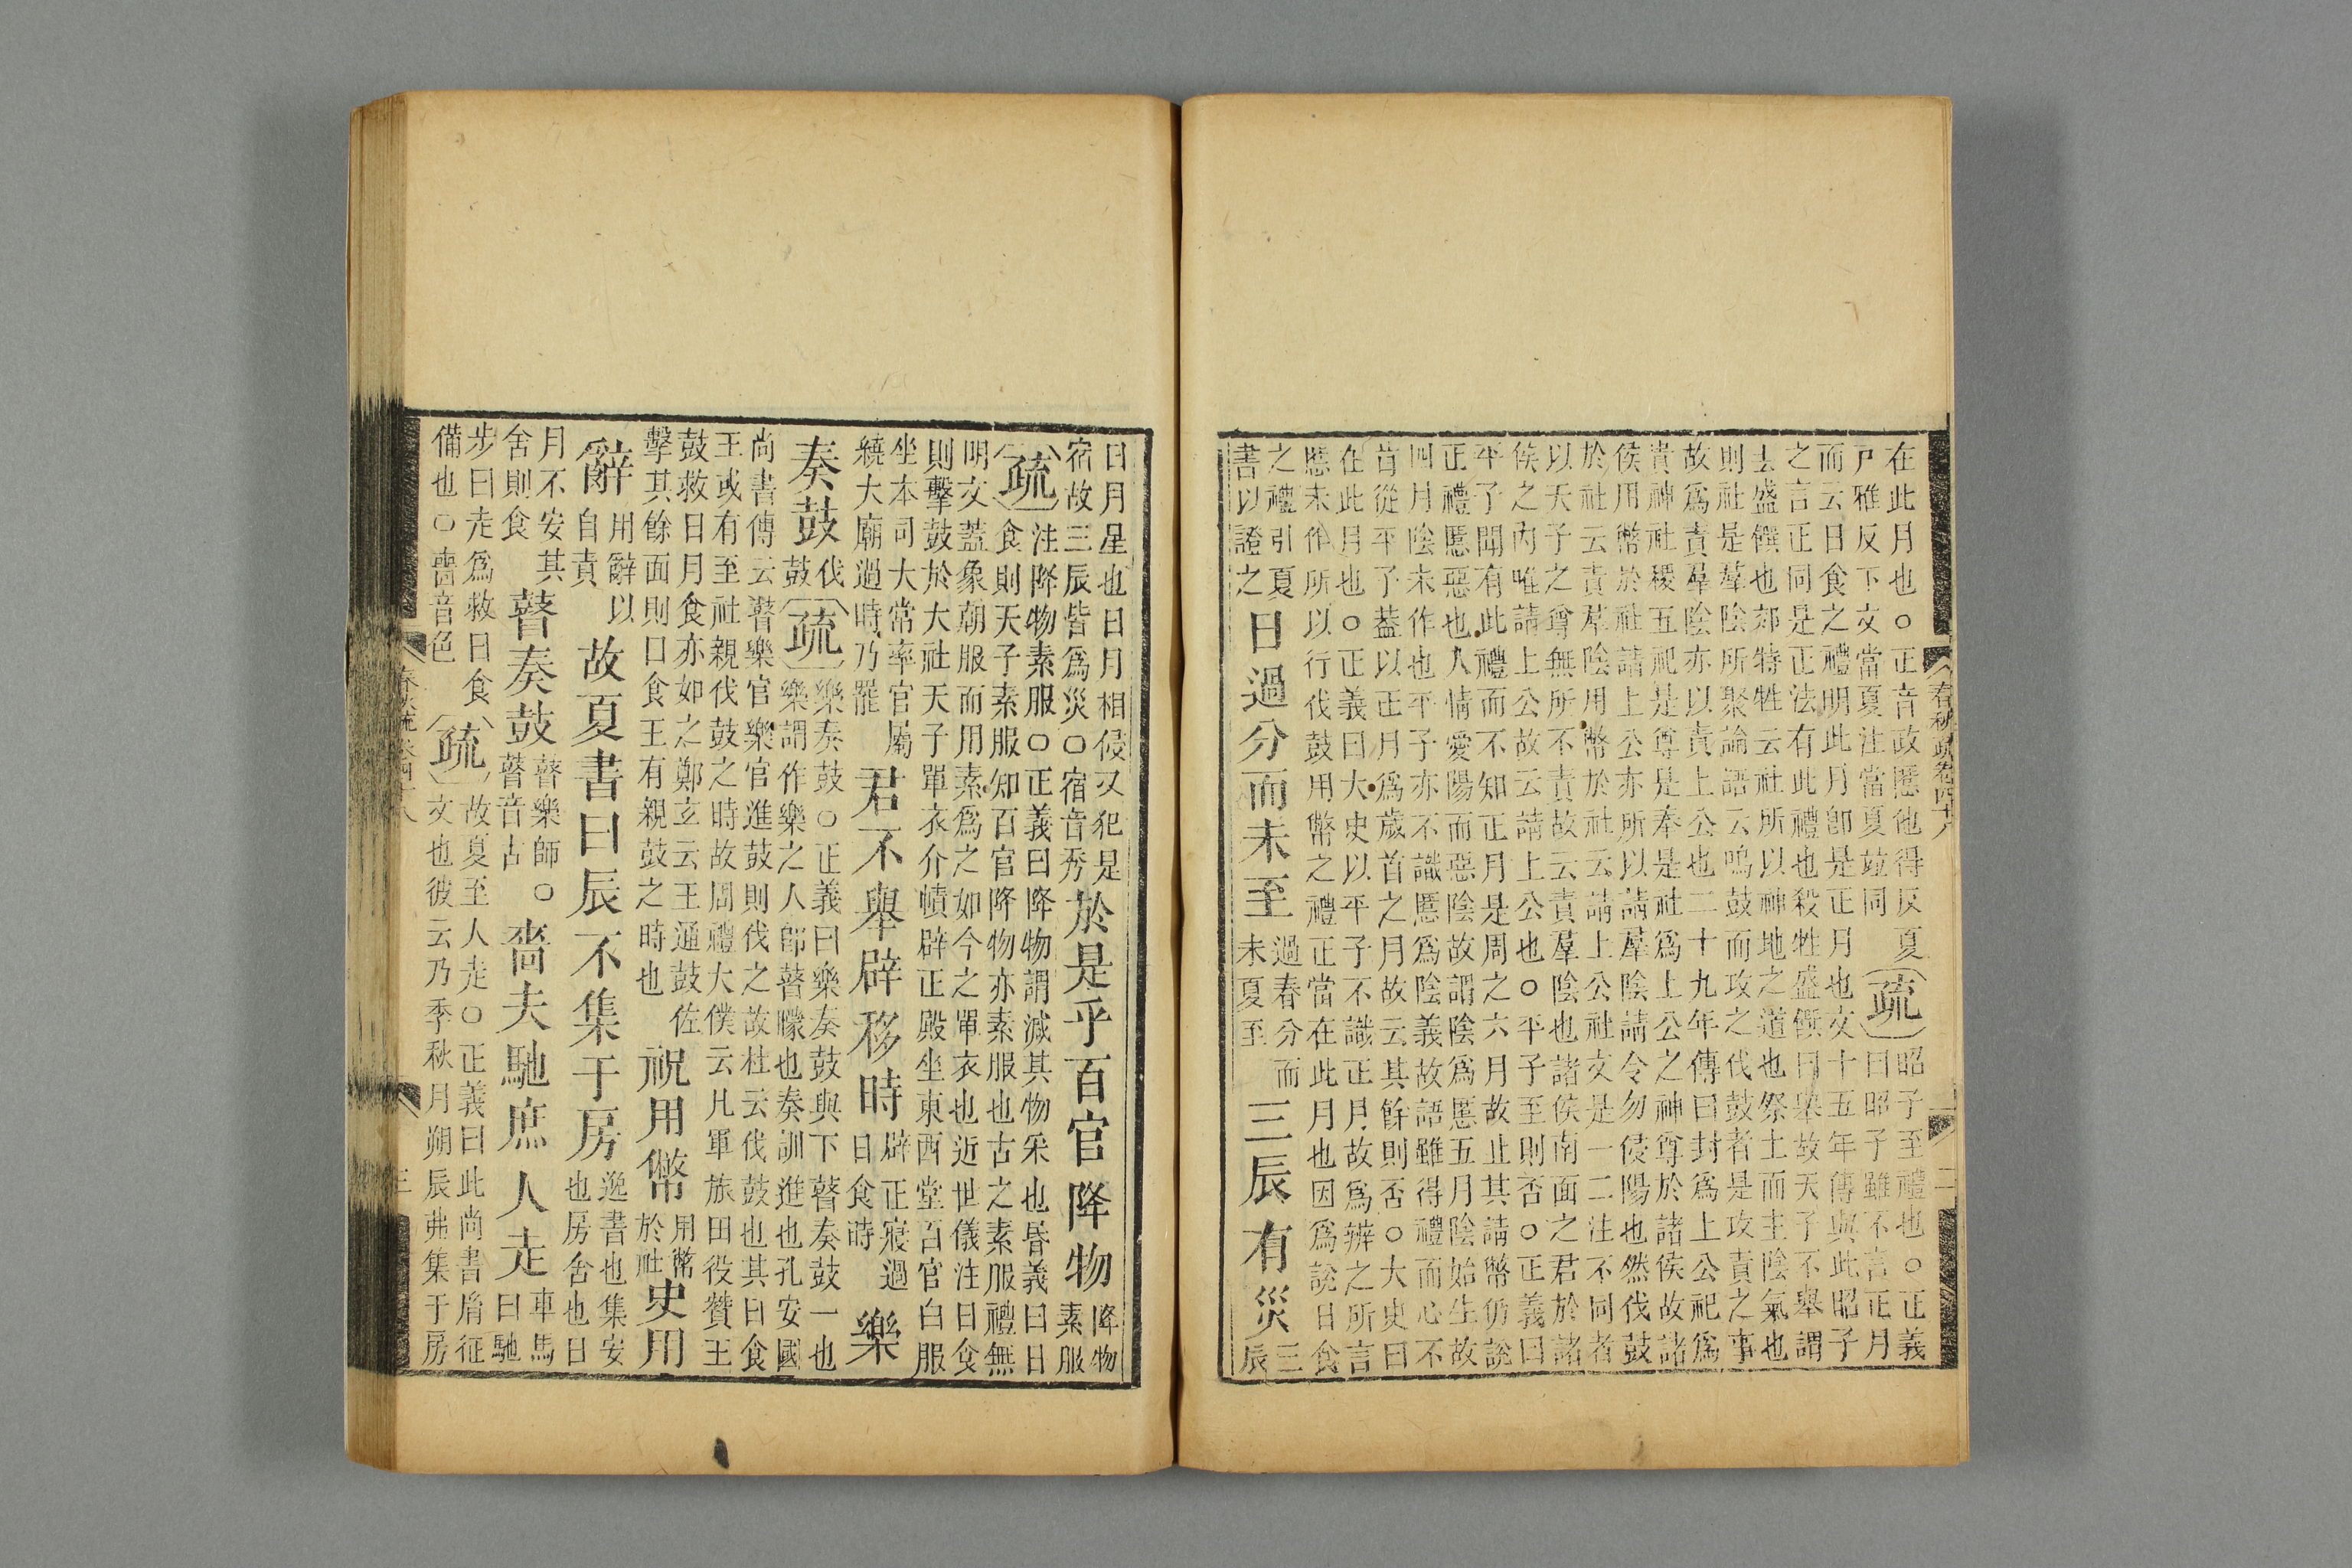 春秋疏卷四十八 二
在此月也○正音政慝他得反夏
戸雅反下文當夏注當夏竝同
疏
昭子至禮也○正義
曰昭子雖不言正月
而云日食之禮明此月卽是正月也文十五年傳與此昭子
之言正同是正法有此禮也殺牲盛饌曰舉故天子不舉謂
去盛饌也郊特牲云社所以神地之道也祭土而主陰氣也
則社是羣陰所聚論語云鳴鼓而攻之伐鼓者是攻責之事
故爲責羣陰亦以責上公也二十九年傳曰封爲上公祀爲
貴神社稷五祀是尊是奉是社爲上公之神尊於諸侯故諸
侯用幣於社請上公亦所以請羣陰請令勿侵陽也然伐鼓
於社云責羣陰用幣於社云請上公社文是一二注不同者
以天子之尊無所不責故云責羣陰也諸侯南面之君於諸
侯之內唯請上公故云請上公也○平子至則否○正義曰
平子聞有此禮而不知正月是周之六月故止其請幣仍說
正禮慝惡也人情愛陽而惡陰故謂陰爲慝五月陰始生故
四月陰未作也平子亦不識慝爲陰義故語雖得禮而心不
肯從平子蓋以正月爲歲首之月故云其餘則否○大史曰
在此月也○正義曰大史以平子不識正月故爲辨之所言
慝未作所以行伐鼓用幣之禮正當在此月也因爲說日食
之禮引夏
書以證之
日過分而未至
過春分而
未夏至
三辰有災
三
辰
日月星也日月相侵又犯是
宿故三辰皆爲災○宿音秀
於是乎百官降物
降物
素服
疏
注降物素服○正義曰降物謂減其物采也昏義曰日
食則天子素服知百官降物亦素服也古之素服禮無
明文蓋象朝服而用素爲之如今之單衣也近世儀注日食
則擊鼓於大社天子單衣介幘辟正殿坐東西堂百官白服
坐本司大常率官屬
繞大廟過時乃罷
君不舉辟移時
辟正寢過
日食時
樂
奏鼓
伐
鼓
疏
樂奏鼓○正義曰樂奏鼓與下瞽奏鼓一也
樂謂作樂之人卽瞽矇也奏訓進也孔安國
尚書傳云瞽樂官樂官進鼓則伐之故杜云伐鼓也其日食
王或有至社親伐鼓之時故周禮大僕云凡軍旅田役贊王
鼓救日月食亦如之鄭玄云王通鼓佐
擊其餘面則日食王有親鼓之時也
祝用幣
用幣
於社
史用
辭
用辭以
自責
故夏書曰辰不集于房
逸書也集安
也房舍也日
月不安其
舍則食
瞽奏鼓
瞽樂師○
瞽音古
嗇夫馳庶人走
車馬
曰馳
步曰走爲救日食
備也○嗇音色
疏
故夏至人走○正義曰此尚書胤征
文也彼云乃季秋月朔辰弗集于房